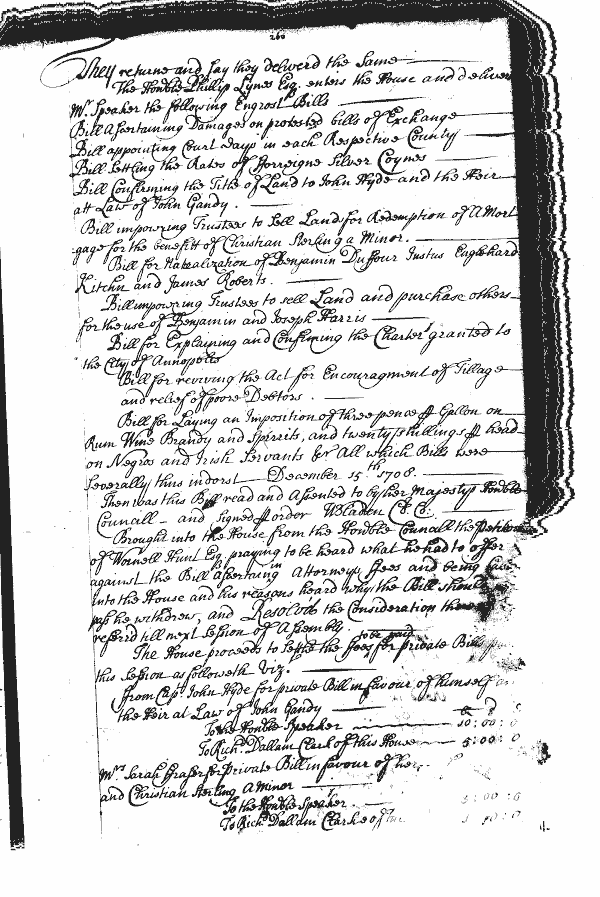 260
They returne and say they deliverd the Same
The Honble Phillip Lynes Esq. enters the House and delivers
Mr. Speaker the following Engrost Bills
Bill Assertaining Damages on protested bills of Exchange
Bill appointing Court Days in each Respective County
Bill Settling the Rates of Forreigne Silver Coynes
Bill Confirming the Title of Land to John Hyde and the Heir
att Law of John Gandy.
Bill impowring Trustees to Sell Land for Redemption of A Mort
gage for the benefitt of Christian Sterling a Minor.
Bill for Naturalization of Benjamin Duffour Justus Englehard
Kitchin and James Roberts.
Bill impowring Trustees to sell Land and purchase others
for the use of Benjamin and Joseph Harris
Bill for Explaining and Confirming the Charter granted to
the City of Annapolis
Bill for reviving the Act for Encouragment of Tillage
and relief of poore Debtors.
Bill for Laying an Imposition of three pence p Gallon on
Rum Wine Brandy and Spirrits, and twenty shillings p head
on Negros and Irish Servants &c All which Bills were
severally thus indorst December 15th 1708.
Then was this Bill read and Assented to by her Majestys Honble
Councill - and Signed p order WBladen Cl. C.
Brought into the House from the Honble Councill the Petition
of Wornell Hunt Esq praying to be heard what he had to offer
against the Bill Assertaining Attorneys ffees and being
into the House and his reasons heard why the Bill should
pass he withdrew, and Resolved the Consideration
referrd till next Session of Assembly
The House proceeds to Settle the ffees to be paid for private Bills
this Session as followeth Viz.
from Capt. John Hyde for private Bill in favour of himself
the Heir at Law of John Gandy
To the Honble Speaker 10:00:0
To Richd Dallam Clark of this House 5:00:0
Mrs. Sarah for private Bill in favour of her
and Christian Sterling A Minor
To the Honble Speaker
To Richd Dallam Clarke of